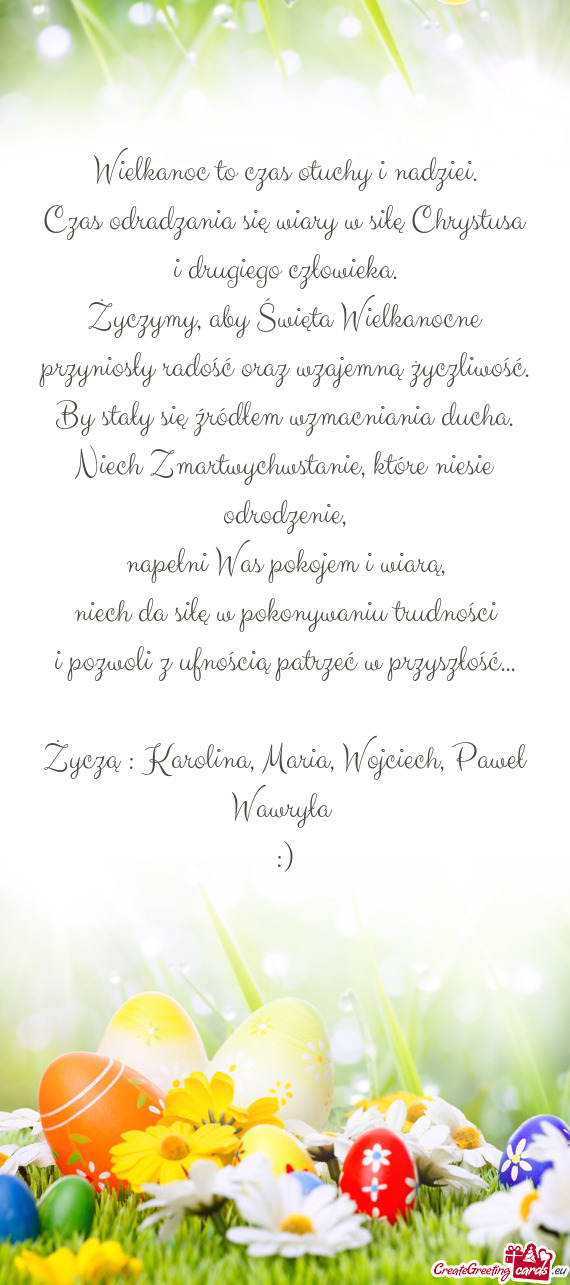 Wielkanoc to czas otuchy i nadziei.
Czas odradzania się wiary w siłę Chrystusa
i drugiego człowieka.
Życzymy, aby Święta Wielkanocne
przyniosły radość oraz wzajemną życzliwość.
By stały się źródłem wzmacniania ducha.
Niech Zmartwychwstanie, które niesie
odrodzenie,
napełni Was pokojem i wiarą,
niech da siłę w pokonywaniu trudności
i pozwoli z ufnością patrzeć w przyszłość...
Życzą : Karolina, Maria, Wojciech, Paweł
Wawryła
:)
CreateGreeting cards.eu